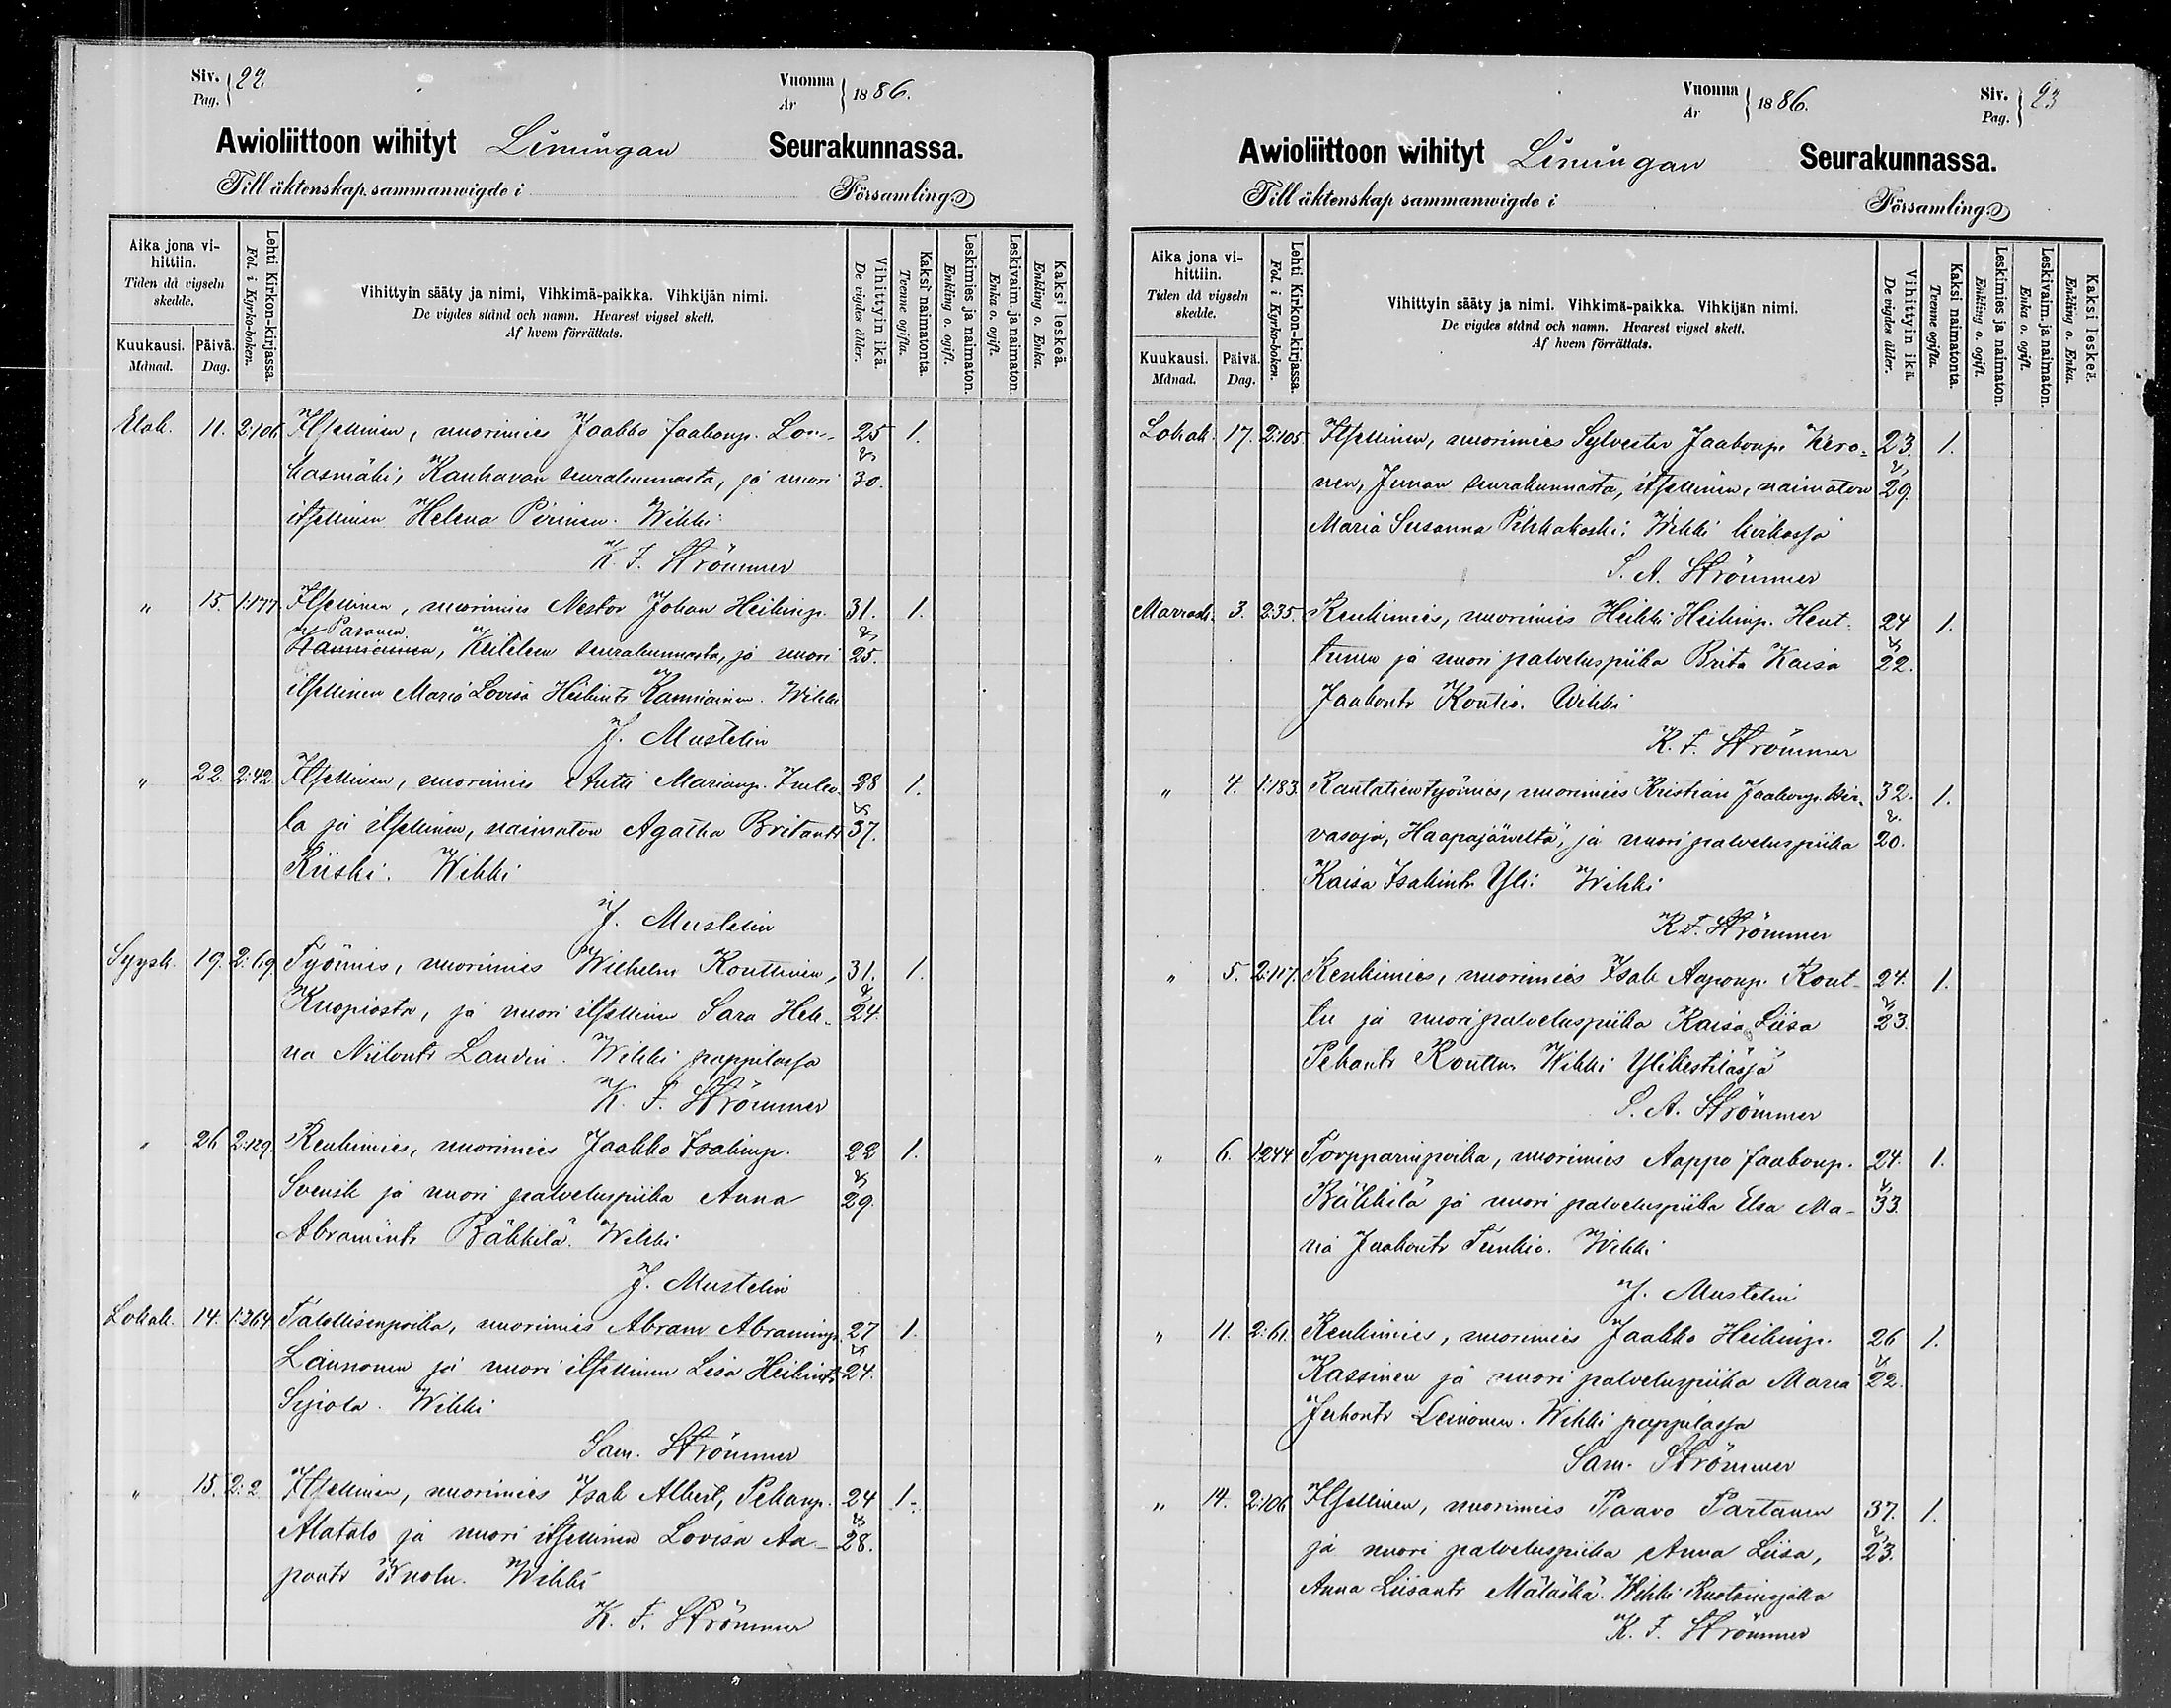 Siv. 22.
Pag.
Vuonna 1886.
År
Awioliittoon wihityt Limingan Seurakunnassa.
Till äktenskap sammanwigde i Församling
Aika jona vihittiin.
Tiden då vigseln skedde.
Kuukausi. Månad.
Päivä. Dag.
Lehti Kirkon-kirjassa.
Fol. i Kyrko-boken.
Vihittyin sääty ja nimi, Vihkimä-paikka. Vihkijän nimi.
De vigdes stånd och namn. Hvarest vigsel skett.
Af hvem förrättats.
Vihittyin ikä.
De vigdes ålder.
Kaksi naimatonta.
Tvenne ogifta.
Leskimies ja naimaton.
Enkling o. ogift.
Leskivaim. ja naimaton.
Enka o. ogift.
Kaksi leskeä.
Enkling o. Enka.
Elok. 11. 2:106 Itsellinen, nuorimies Jaakko Jaakonp. Lou- 25 1.
kasmäki, Kauhavan seurakunnasta, ja nuori 30.
itsellinen Helena Pirinen. Wihki
K. F. Strömmer
" 15. 1:177 Itsellinen, nuorimies Nestor Johan Heikinp. 31. 1.
Pasanen.
Kanniainen, Keiteleen seurakunnasta, ja nuori 25.
itsellinen Maria Lovisa Heikint. Kanniainen. Wihki
J. Mustelin
" 22. 2:42 Itsellinen, nuorimies Antti Marianp. 28 1.
la ja itsellinen, naimaton Agatha Britantr 37.
Riiski. Wihki
J. Mustelin
Syysk. 19. 2:69 Työmies, nuorimies Wilhelm Konttinen, 31. 1.
Kuopiosta, ja nuori itsellinen Sara Hele- 24.
na Niilontr Landin. Wihki pappilassa
K. F. Strömmer
" 26 2:129. Renkimies, nuorimies Jaakko Isakinp. 22 1.
Svensk ja nuori palveluspiika Anna 29.
Abramintr Bäkkilä. Wihki
J. Mustelin
Lokak. 14. 1:264 Talollisenpoika, nuorimies Abram Abraminp. 27 1.
Lannonen ja nuori itsellinen Lisa Heikintr 24.
Sipola. Wihki
Sam. Strömmer
" 15. 2:2 Itsellinen, nuorimies Isak Albert, Pekanp. 24 1.
Alatalo ja nuori itsellinen Lovisa Aa- 28.
pontr Knolu. Wihki
K. F. Strömmer
Vuonna 1886.
År
Siv. 23
Pag.
Awioliittoon wihityt Limingan Seurakunnassa.
Till äktenskap sammanwigde i Församling
Aika jona vihittiin.
Tiden då vigseln skedde.
Kuukausi. Månad.
Päivä. Dag.
Lehti Kirkon-kirjassa.
Fol. i Kyrko-boken.
Vihittyin sääty ja nimi. Vihkimä-paikka. Vihkijän nimi.
De vigdes stånd och namn. Hvarest vigsel skett.
Af hvem förrättats.
Vihittyin ikä.
De vigdes ålder.
Kaksi naimatonta.
Tvenne ogifta.
Leskimies ja naimaton.
Enkling o. ogift.
Leskivaim. ja naimaton.
Enka o. ogift.
Kaksi leskeä.
Enkling o. Enka.
Lokak. 17. 2:105. Itsellinen, nuorimies Sylvester Jaakonp. Kero- 23. 1.
nen, Juuan seurakunnasta, itsellinen, naimaton 29.
Maria Susanna Pihkakoski. Wihki kirkossa
S. A. Strömmer
Marrask. 3. 2:35. Renkimies, nuorimies Heikki Heikinp. Hent- 24 1.
tunen ja nuori palveluspiika Brita Kaisa 22.
Jaakontr Kontio. Wihki
K. F. Strömmer
" 4. 1:183. Rautatientyömies, nuorimies Kristian Jaakonp. Hir- 32. 1.
vasoja, Haapajäweltä, ja nuori palveluspiika 20.
Kaisa Isakintr Yli. Wihki
K F. Strömmer
" 5. 2:117. Renkimies, nuorimies Isak Aaponp. Kont- 24. 1.
tu ja nuori palveluspiika Kaisa Liisa 23.
Pekantr Konttu. Wihki Ylikestilässä
S. A. Strömmer
" 6. 1:244 Torpparinpoika, nuorimies Aappo Jaakonp. 24. 1.
Bäkkilä ja nuori palveluspiika Elsa Ma- 33.
ria Jaakontr Tunkio. Wihki
J. Mustelin
" 11. 2:61. Renkimies, nuorimies Jaakko Heikinp. 26 1.
Kassinen ja nuori palveluspiika Maria 22.
Juhontr Leinonen. Wihki pappilassa
Sam. Strömmer
" 14. 2:106 Itsellinen, nuorimies Paavo Partanen 37. 1.
ja nuori palveluspiika Anna Liisa, 23.
Anna Liisantr Mälaskä. Wihki Ruotsinojalla
K. F. Strömmer